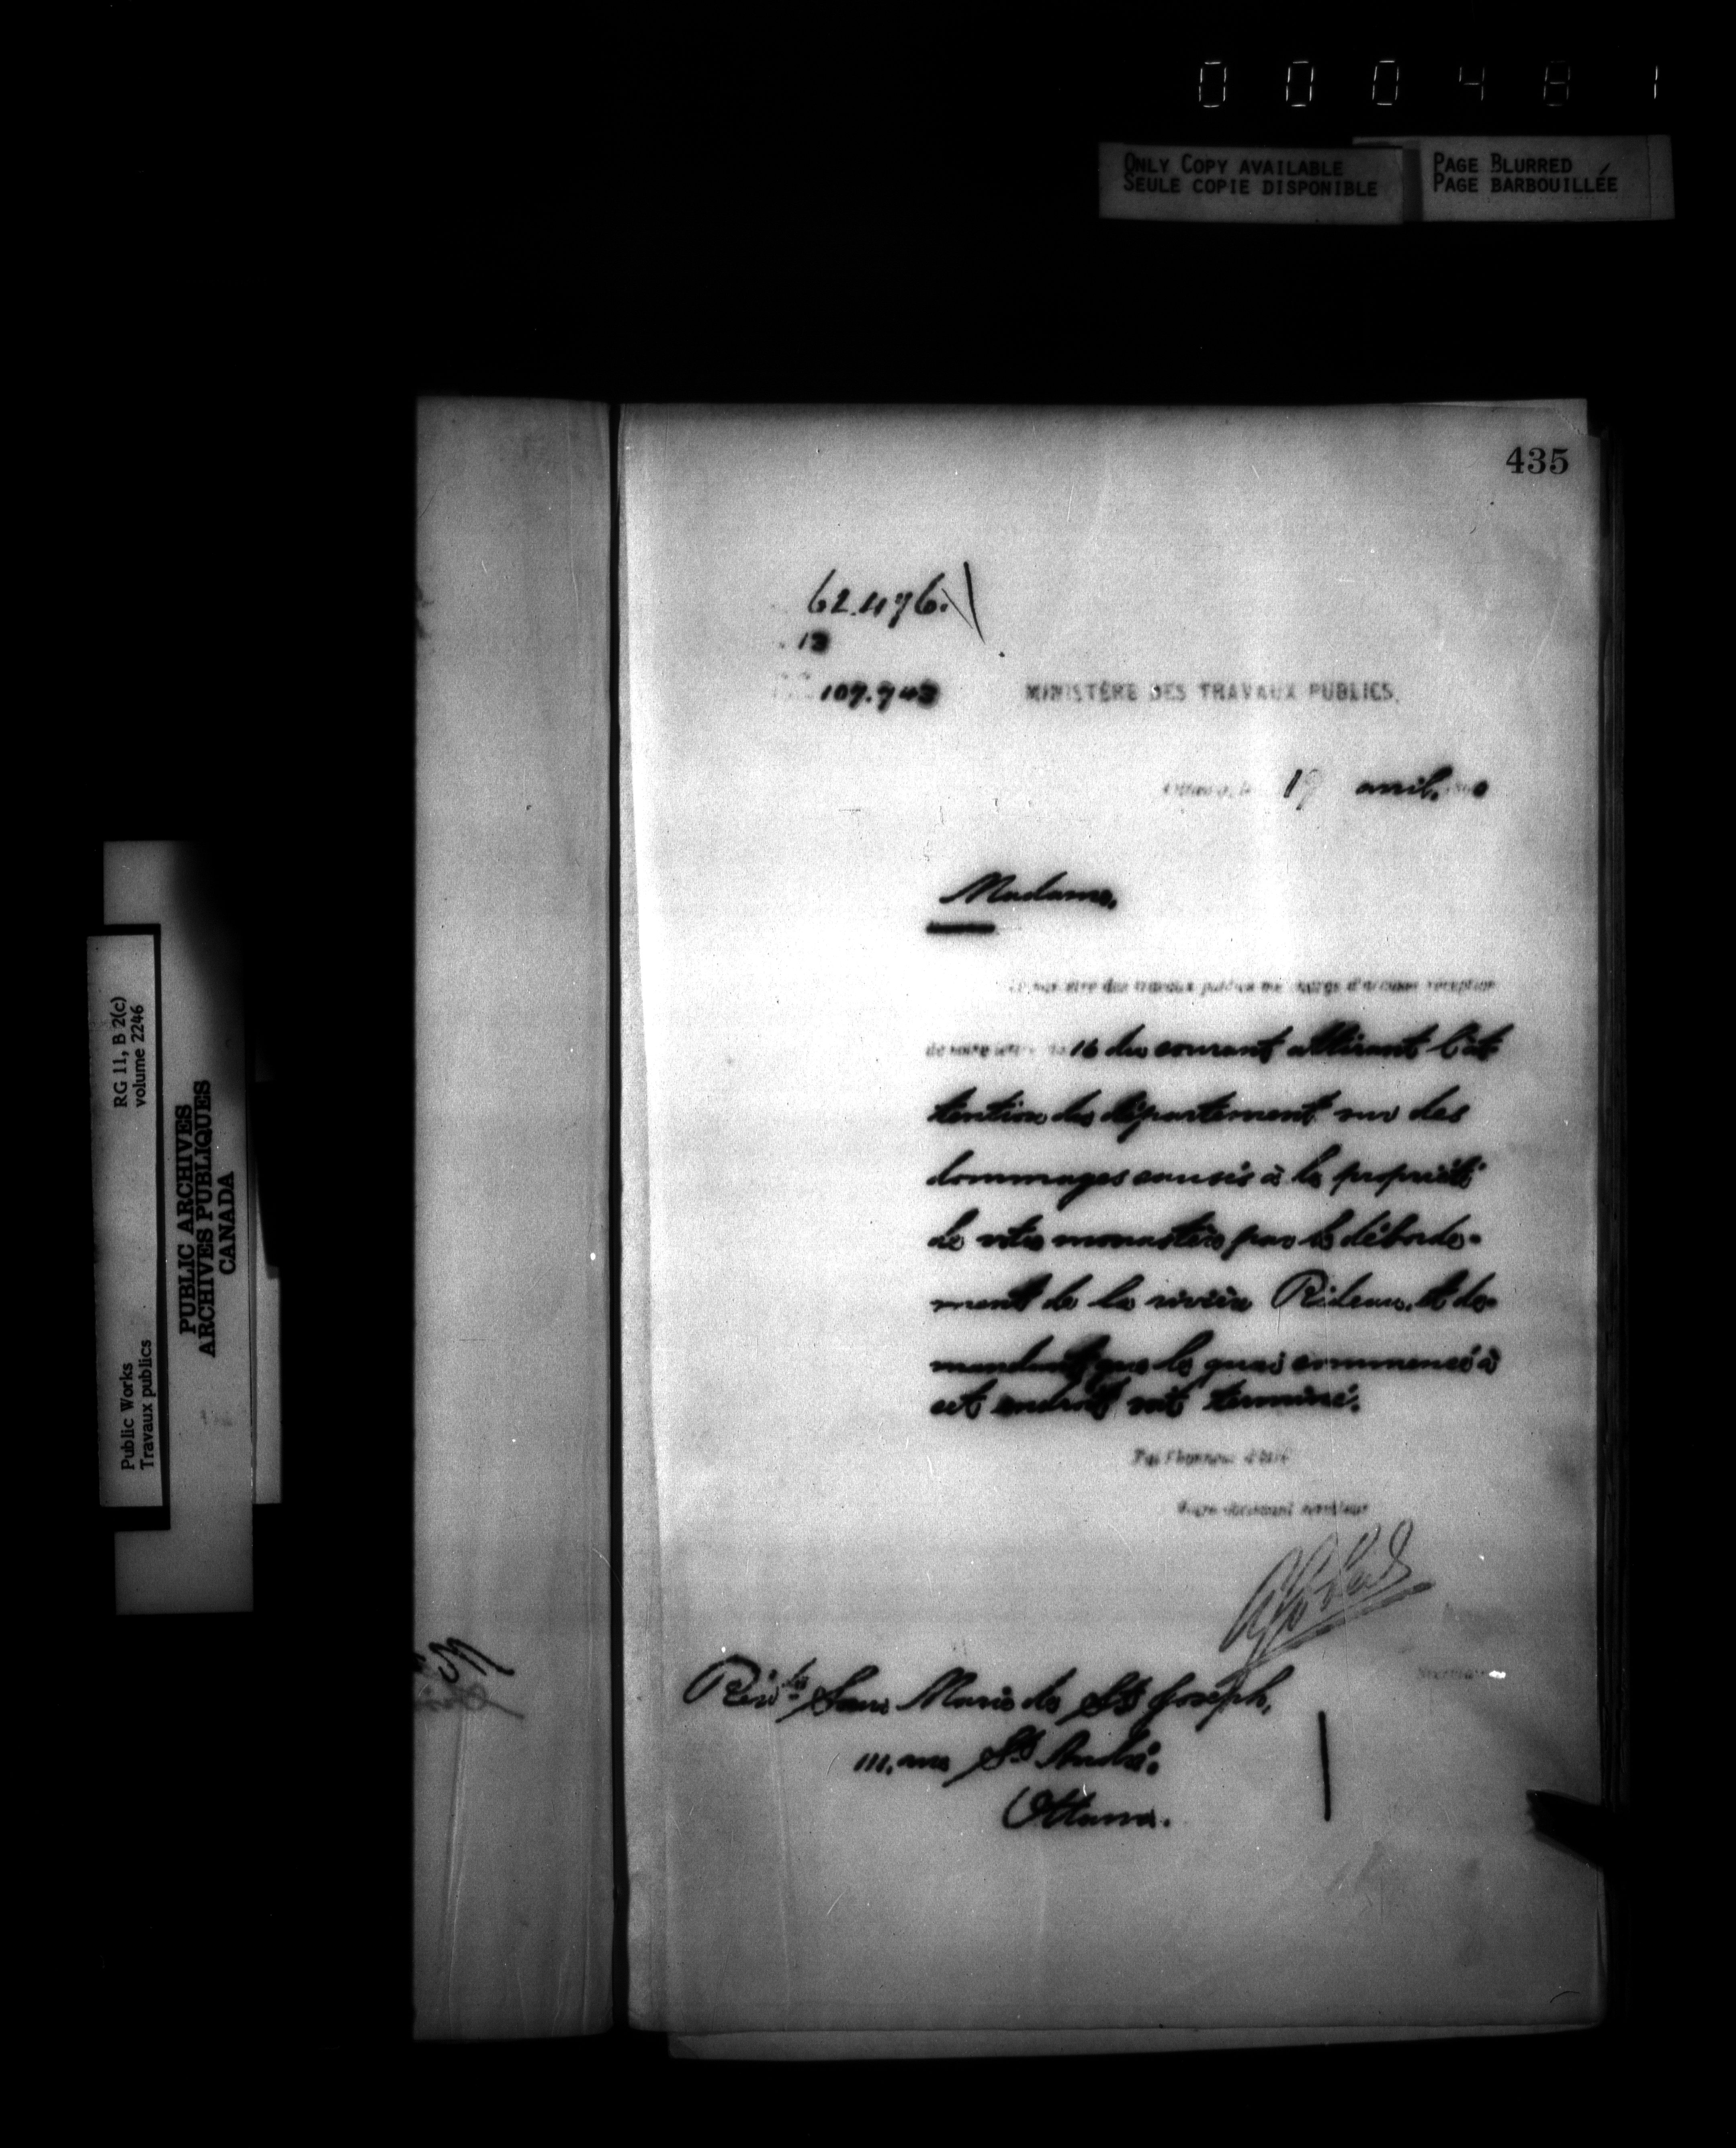 000481
ONLY COPY AVAILABLE
SEULE COPIE DISPONIBLE
PAGE BLURRED
PAGE BARBOUILLÉE
435
62.476.
13
107.743
MINISTÈRE DES TRAVAUX PUBLICS.
Ottawa, le 19 avril, 0
Madame,
Le ministre des travaux publics me charge d'accuser réception
de votre lettre du 16 du courant attirant l'at
tention du département sur des
dommages causés à la propriété
de votre monastère par le déborde-
ment de la rivière Rideau, et de-
mandant que le quai commencé à
cet endroit soit terminé.
J'ai l'honneur d'être
Votre obéissant serviteur
Révde Sœur Marie de St Joseph,
111, rue St André.
Ottawa.
RG 11, B 2(c)
volume 2246
Public Works
Travaux publics
PUBLIC ARCHIVES
ARCHIVES PUBLIQUES
CANADA